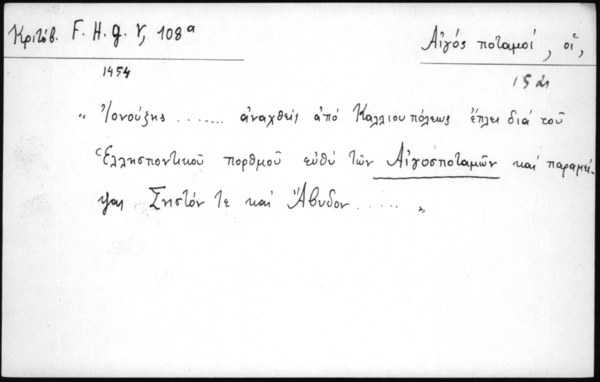 Κριτόβ. F. H. g. V, 108ᵃ
Αἰγός ποταμοί, οἱ,
1454
15 αι
" Ἰονούζης ....... ἀναχθείς ἀπό Καλλιουπόλεως ἔπλει διά τοῦ
Ἑλλησποντικοῦ πορθμοῦ εὐθύ τῶν Αἰγοσποταμῶν καί παραμεί-
ψας Σηστόν τε καί Ἄβυδον ..... "